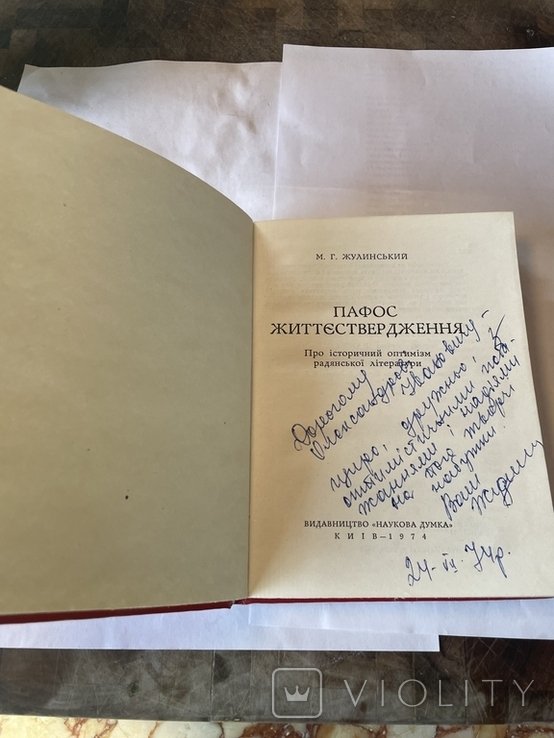 М. Г. ЖУЛИНСЬКИЙ
ПАФОС
ЖИТТЄСТВЕРДЖЕННЯ
Про історичний оптимізм
радянської літератури
Дорогому
Олександрові Івановичу –
щиро, дружньо, з
оптимістичними побажаннями
і надіями
на його творчі
набутки!
Ваш
24. VII. 74р.
ВИДАВНИЦТВО «НАУКОВА ДУМКА»
КИЇВ—1974
VIOLITY